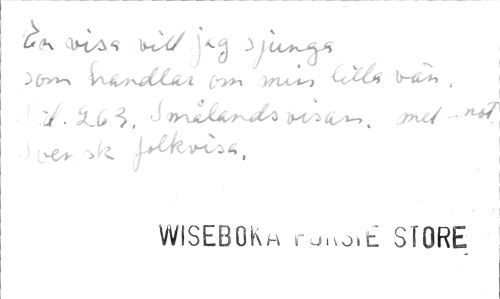 En visa vill jag sjunga
som handlar om min lilla vän.
Sid. 263. Smålandsvisan. med not
Svensk folkvisa.
WISEBOKA FÖRSTE STORE